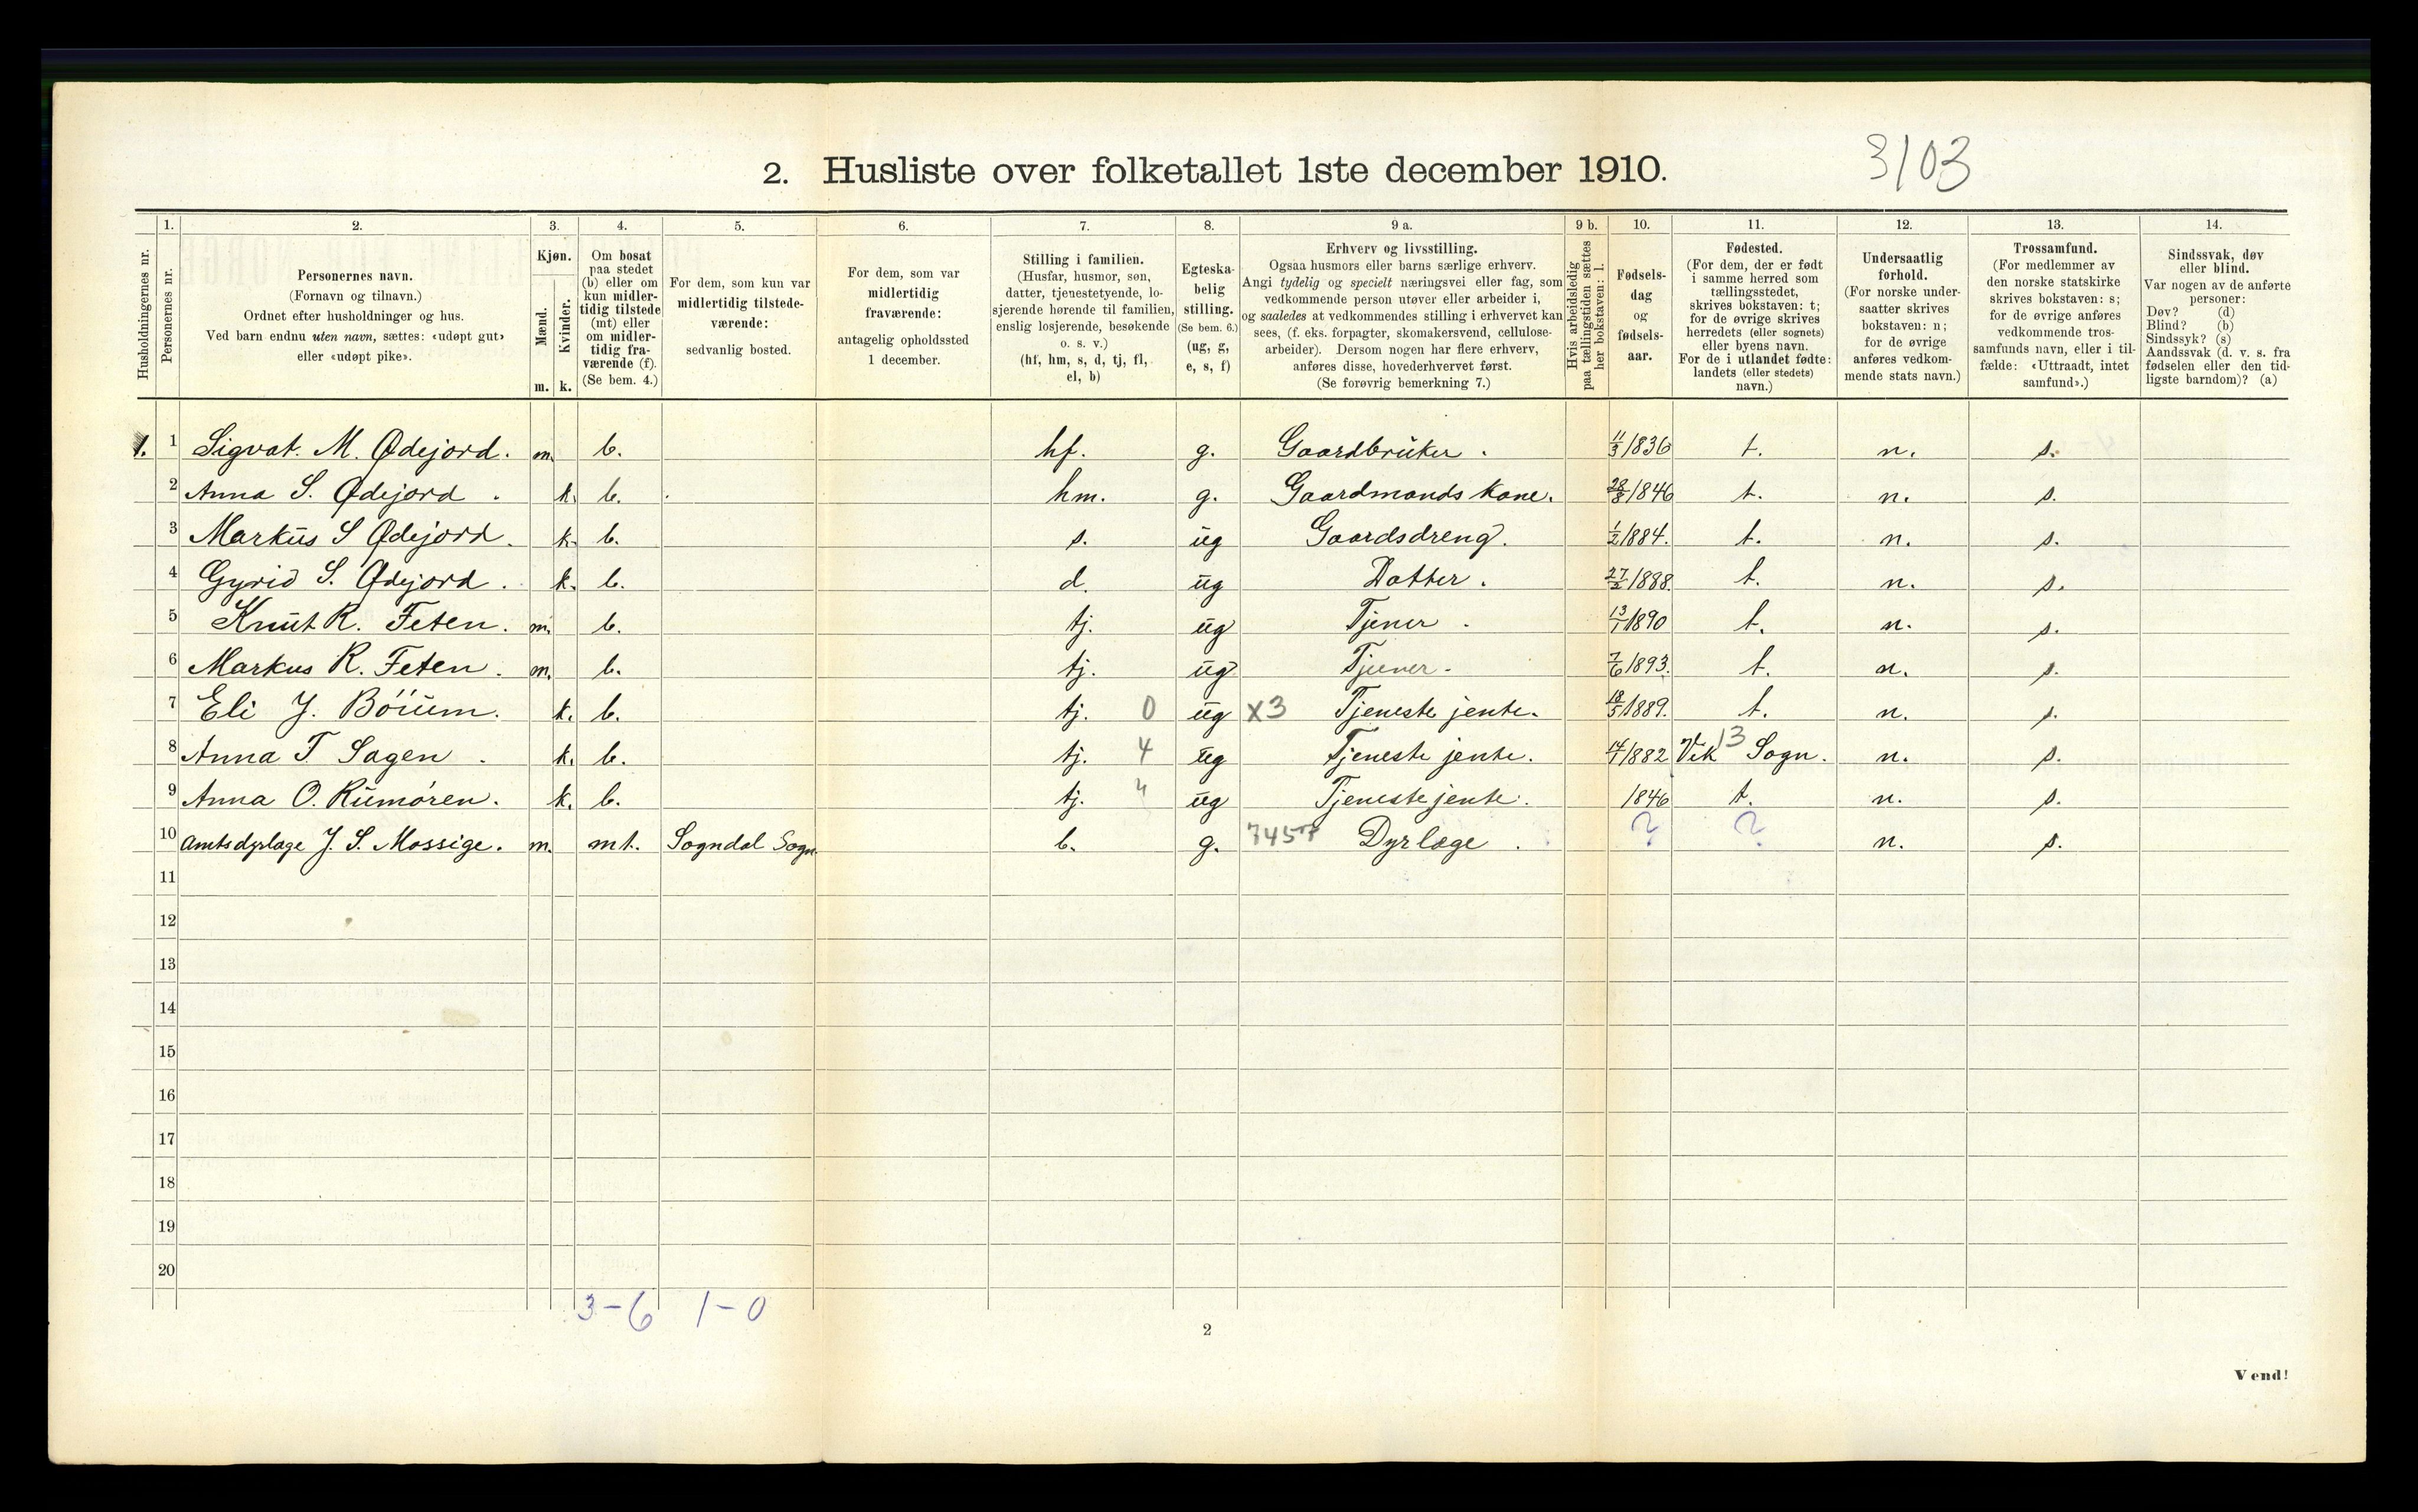 3/03
2. Husliste over folketallet 1ste december 1910.
Husholdningernes nr.
1. Personernes nr.
2. Personernes navn. (Fornavn og tilnavn.) Ordnet efter husholdninger og hus. Ved barn endnu uten navn, sættes: «udøpt gut» eller «udøpt pike».
3. Kjøn. Mænd. m. Kvinder. k.
4. Om bosat paa stedet (b) eller om kun midlertidig tilstede (mt) eller om midlertidig fraværende (f). (Se bem. 4.)
5. For dem, som kun var midlertidig tilstedeværende: sedvanlig bosted.
6. For dem, som var midlertidig fraværende: antagelig opholdssted 1 december.
7. Stilling i familien. (Husfar, husmor, søn, datter, tjenestetyende, losjerende hørende til familien, enslig losjerende, besøkende o. s. v.) (hf, hm, s, d, tj, fl, el, b)
8. Egteskabelig stilling. (Se bem. 6.) (ug, g, e, s, f)
9 a. Erhverv og livsstilling. Ogsaa husmors eller barns særlige erhverv. Angi tydelig og specielt næringsvei eller fag, som vedkommende person utøver eller arbeider i, og saaledes at vedkommendes stilling i erhvervet kan sees, (f. eks. forpagter, skomakersvend, cellulosearbeider). Dersom nogen har flere erhverv, anføres disse, hovederhvervet først. (Se forøvrig bemerkning 7.)
9 b. Hvis arbeidsledig paa tællingstiden sættes her bokstaven: l.
10. Fødselsdag og fødselsaar.
11. Fødested. (For dem, der er født i samme herred som tællingsstedet, skrives bokstaven: t; for de øvrige skrives herredets (eller sognets) eller byens navn. For de i utlandet fødte: landets (eller stedets) navn.)
12. Undersaatlig forhold. (For norske undersaatter skrives bokstaven: n; for de øvrige anføres vedkommende stats navn.)
13. Trossamfund. (For medlemmer av den norske statskirke skrives bokstaven: s; for de øvrige anføres vedkommende trossamfunds navn, eller i tilfælde: «Uttraadt, intet samfund».)
14. Sindssvak, døv eller blind. Var nogen av de anførte personer: Døv? (d) Blind? (b) Sindssyk? (s) Aandssvak (d. v. s. fra fødselen eller den tidligste barndom)? (a)
1. 1 Sigvat. M. Ødejord. m. b. hf. g. Gaardbruker. 11/3 1836 t. n. s.
2 Anna S. Ødejord. k. b. hm. g. Gaardmands kone. 28/8 1846 t. n. s.
3 Markus S Ødejord. k. b. s. ug Gaardsdreng. 1/2 1884. t. n. s.
4 Gyrid S. Ødejord. k. b. d. ug Datter. 27/2 1888. t. n. s.
5 Knut R. Feten. m. b. tj. ug Tjener. 13/1 1890 t. n. s.
6 Markus R. Feten. m. b. tj. ug Tjener. 7/6 1893. t. n. s.
7 Eli J. Böium. k. b. tj. 0 ug x3 Tjeneste jente. 18/5 1889. t. n. s.
8 Anna T. Sagen. k. b. tj. 4 ug Tjeneste jente. 1882 Vik 13 Sogn. n. s.
9 Anna O. Rumören. k. b. tj. 4 ug Tjenestejente. 1846 t. n. s.
10 Amtsdyrlæge J. S. Mossige. m. mt. Sogndal Sogn. b. g. 7457 Dyrlæge. ? ? n. s.
11
12
13
14
15
16
17
18
19
20
3-6 1-0
2
Vend!